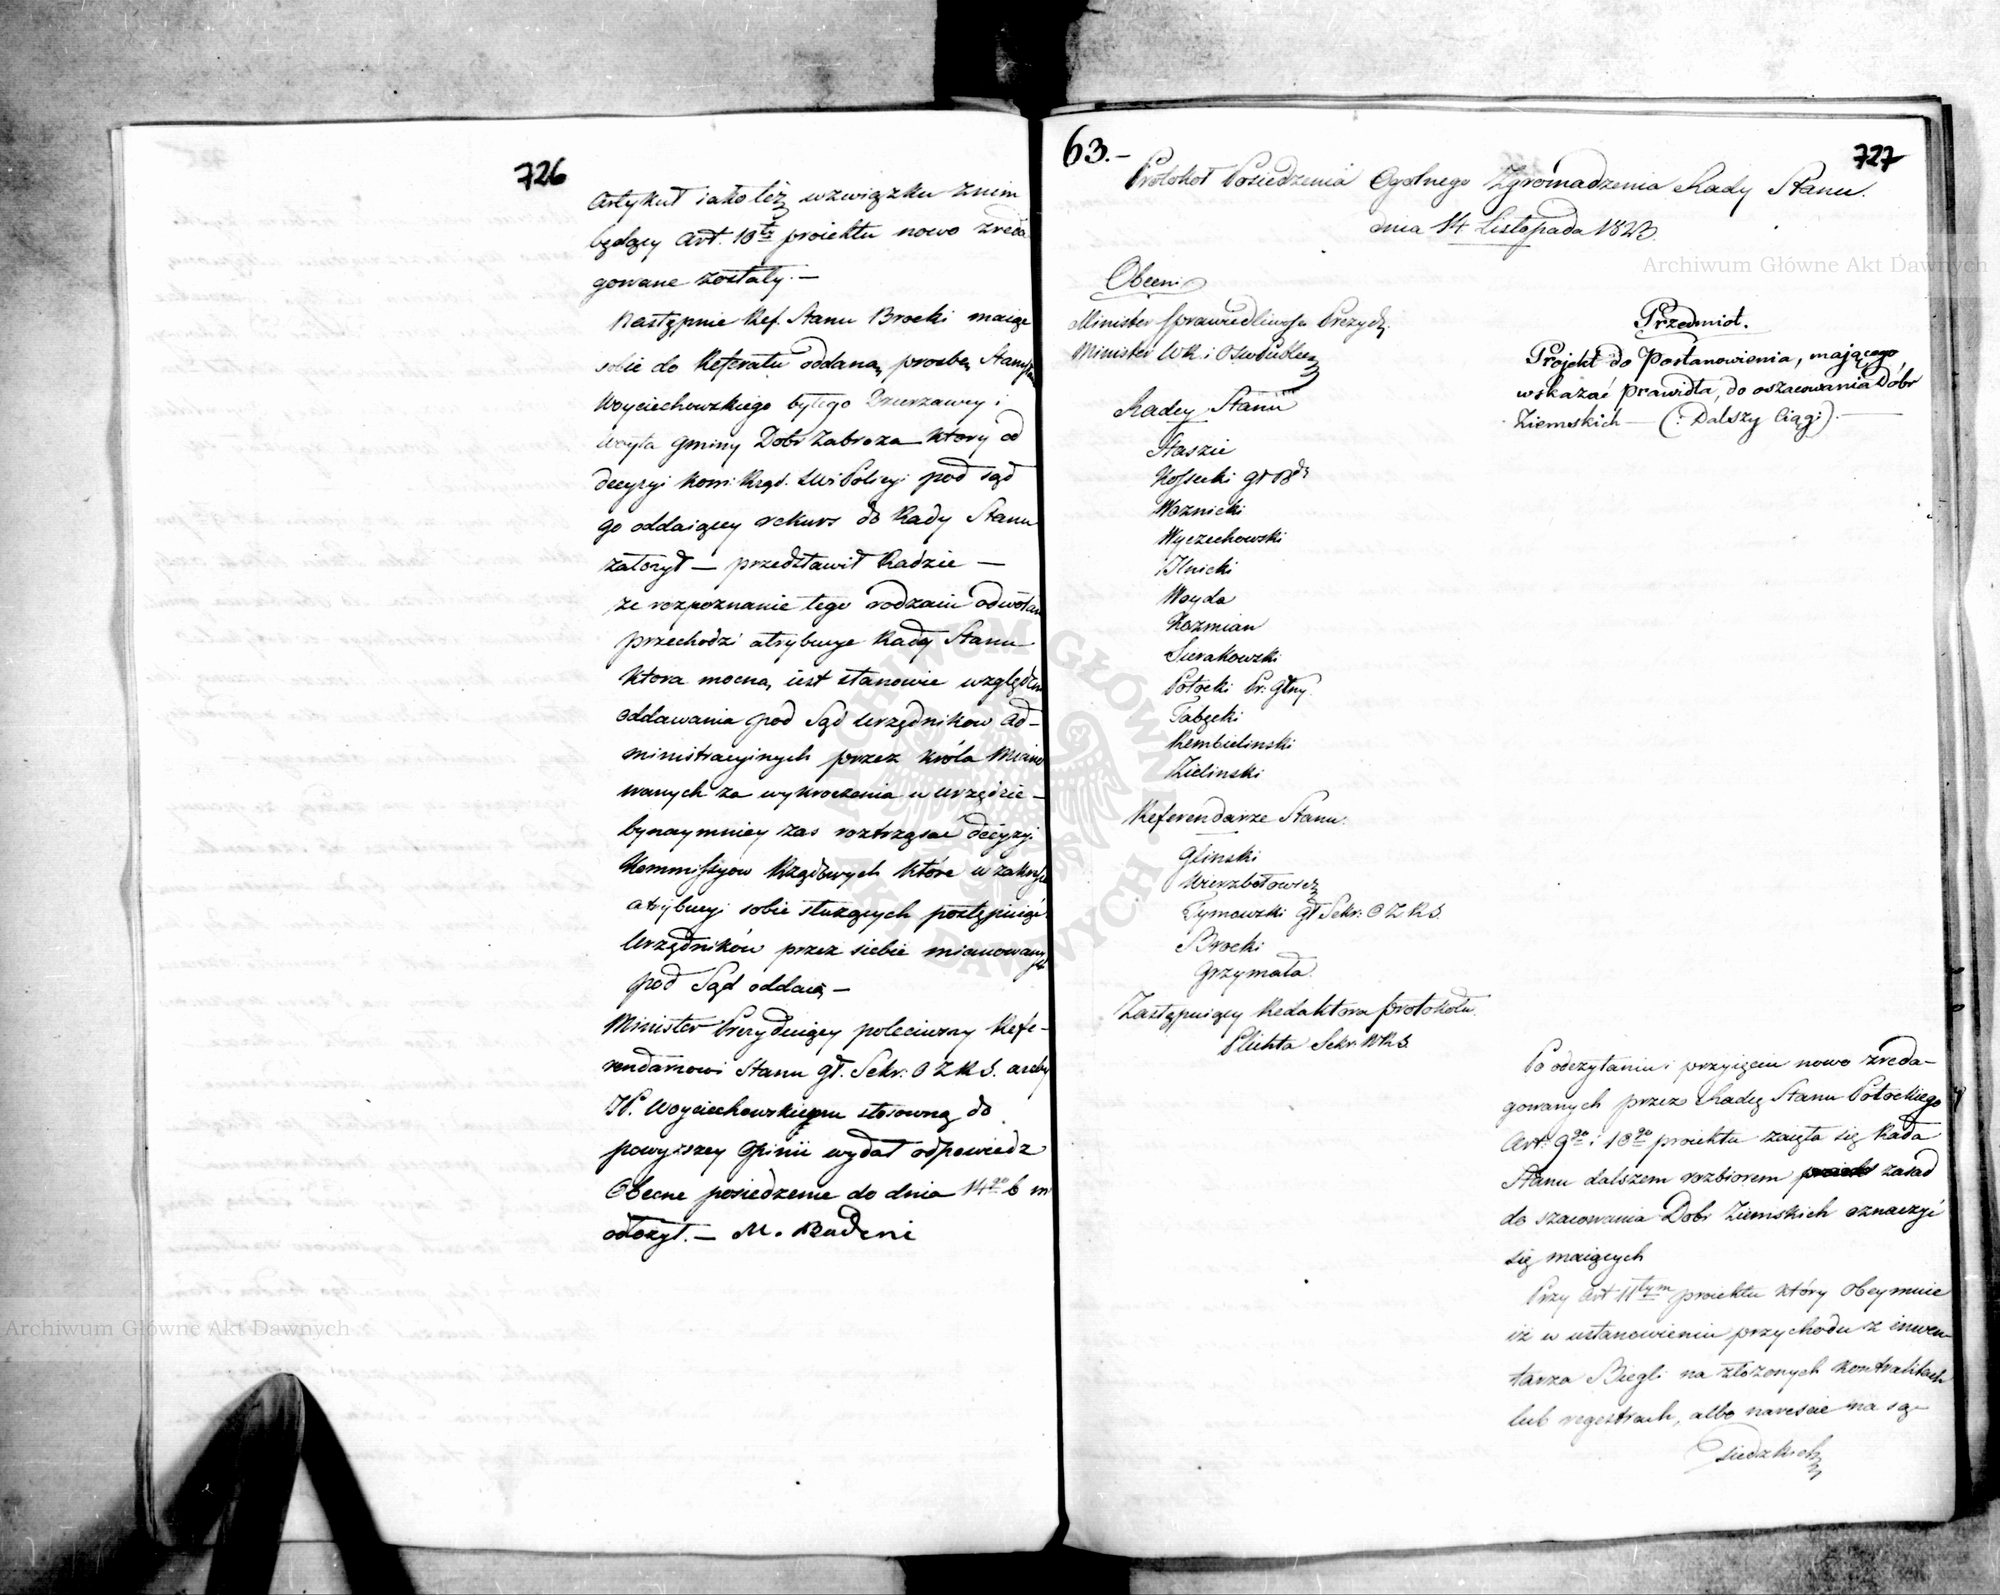 726
Artykuł iako też w związku z nim
będący Art. 10ty proiektu nowo zreda
gowane zostały. —
Następnie Ref. Stanu Brocki maiąc
sobie do Referatu oddaną prozbę
Woyciechowskiego byłego Dzierzawcy i
Woyta Gminy Dobr Zabroza który od
decyzyi Kom: Rząd. SW i Policyi pod sąd
go oddaiącey rekurs do Rady Stanu
założył — przedstawił Radzie —
że rozpoznanie tego rodzaiu odwołań
przechodzi atrybucye Rady Stanu
która mocną iest stanowić względem
oddawania pod Sąd Urzędników Ad-
ministracyinych przez Króla miano
wanych za wykroczenia w urzędzie —
bynaymniey zaś roztrząsać decyzyi
Kommissyow Rządowych które w zakresie
atrybucyi sobie służących postępuiąc
Urzędników przez siebie mianowanych
pod Sąd oddaią —
Minister Prezyduiący poleciwszy Refe-
rendarzowi Stanu Gł. Sekr: O Z R S. ażeby
JP. Woyciechowskiemu stosowną do
powyższey Opinii wydał odpowiedz
Obecne posiedzenie do dnia 14go b m
odłożył. — M. Badeni
63.—
727
Protokoł Posiedzenia Ogolnego Zgromadzenia Rady Stanu.
dnia 14 Listopada 1823.
Obecni
Minister Sprawiedliwości Prezyd:
Minister WR. i Oświe Publ:
Radcy Stanu
Staszic
Kossecki
Woznicki
Wyczechowski
Ilnicki
Woyda
Kozmian
Sierakowski
Potocki Pr: Głny.
Tabęcki
Rembielinski
Zielinski
Referendarze Stanu.
Glinski
Wierzbołowicz
Tymowski Gł Sekr: O Z R S.
Brocki
Grzymała
Zastępuiący Redaktora protokołu.
Plichta Sekr. RS.
Przedmiot.
Projekt do Postanowienia, mającego
wskazać prawidła, do oszacowania Dóbr
Ziemskich — (: Dalszy Ciąg :) —
Po odczytaniu i przyięciu nowo zreda-
gowanych przez Radcę Stanu Potockiego
Art: 9go i 10go proiektu zaięła się Rada
Stanu dalszem rozbiorem zasad
do szacowania Dobr Ziemskich oznaczyć
się maiących
Przy Art 11tym proiektu który obeymuie
iż w ustanowieniu przychodu z inwen-
tarza Biegli na złożonych kontraktach
lub regestrach, albo nareście na są-
siedzkich